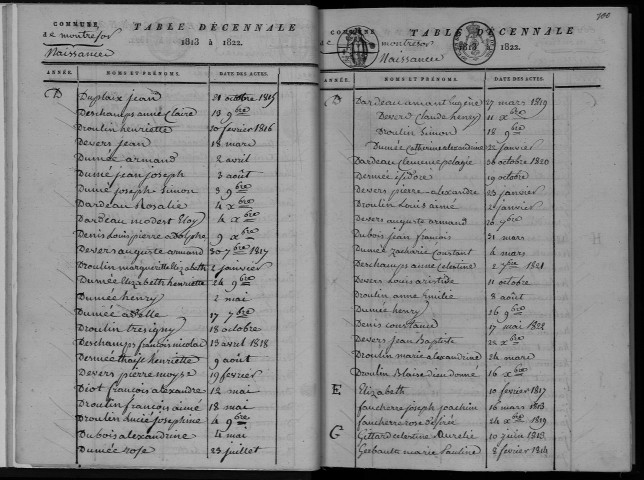 COMMUNE
de montresor
TABLE DÉCENNALE
1813 à 1822.
Naissances
ANNÉE.
NOMS ET PRÉNOMS.
DATE DES ACTES.
D Duplaix jean 31 octobre 1815
Deschamps anne Claire 13 9bre
Droulin henriette 20 fevrier 1816
Devers jean 18 mars
Dumée armand 2 avril
Dumée jean joseph 3 août
Dumé joseph Simon 3 9bre
Dardeau Rosalie 4 xbre
Dardeau modest Eloy 4 xbre
Denis Louis pierre adolphe 9 xbre
Devers auguste armand 30 7bre 1817
Droulin margueritte Elizabeth 2 janvier
Dumée Elizabeth henriette 24 9bre
Dumée henry 2 mai
Dumée adelle 17 7bre
Droulin tresigny 18 octobre
Deschamps françois nicolas 13 avril 1818
Dermée thaïse henriette 9 août
Devers pierre moyse 19 fevrier
Diot françois alexandre 12 mai
Droulin françois aimé 18 mai
Droulin Lucie josephine 4 9bre
Dubois alexandrine 4 mai
Dumée rose 23 juillet
100
COMMUNE
de montresor
TABLE DÉCENNALE
1813 à 1822.
Naissances
ANNÉE.
NOMS ET PRÉNOMS.
DATE DES ACTES.
D Dardeau amant Eugène 27 mars 1819
Devers Claude henry 11 xbre
Droulin Simon 18 9bre
Dumée Catherine alexandrine 22 janvier
Dardeau Clemence pelagie 26 octobre 1820
Dermée isidore 19 octobre
Devers pierre alexandre 23 janvier
Droulin Louis aimé 2 janvier
Devers auguste armand 26 7bre
Dubois jean françois 31 mars
Dumée zacharie Constant 4 mars
Deschamps anne Celestine 2 7bre 1821
Devers Louis aristide 11 octobre
Droulin anne Emilie 8 août
Dumée henry 26 9bre
Denis constance 17 mai 1822
Devers jean Baptiste 22 xbre
Droulin marie alexandrine 24 mars
Droulin Blaise dieu donné 16 xbre
E Elizabeth 10 fevrier 1817
faucherre joseph joachim 16 mars 1813
faucherre rose desirée 24 xbre 1819
G Gittard celestine Aurelie 10 juin 1813
Guibault marie Pauline 8 fevrier 1814